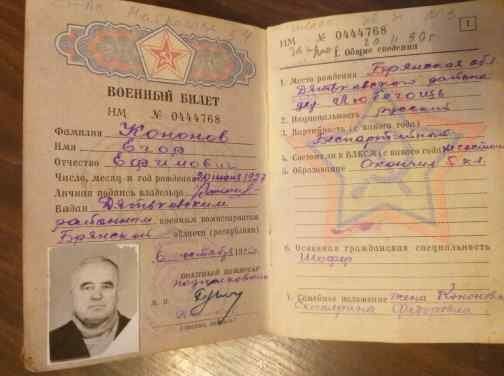 ВОЕННЫЙ БИЛЕТ
НМ № 0444768
Фамилия Кононов
Имя Егор
Отчество Ефимович
Число, месяц и год рождения
Личная подпись владельца
Выдан Дятьковским
районным военным комиссариатом
Брянской области (республики)
6 октября
военный комиссар
подполковник
М. П.
НМ № 0444768
1
I. Общие сведения
1. Место рождения Брянская обл
Дятьковского района
дер. Любегощь
2. Национальность русский
3. Партийность (с какого года)
беспартийный
4. Состоял ли в ВЛКСМ (с какого года) не состоял
5. Образование Окончил 5 кл.
6. Основная гражданская специальность
Шофер
7. Семейное положение жена Кононова
Екатерина Федоровна